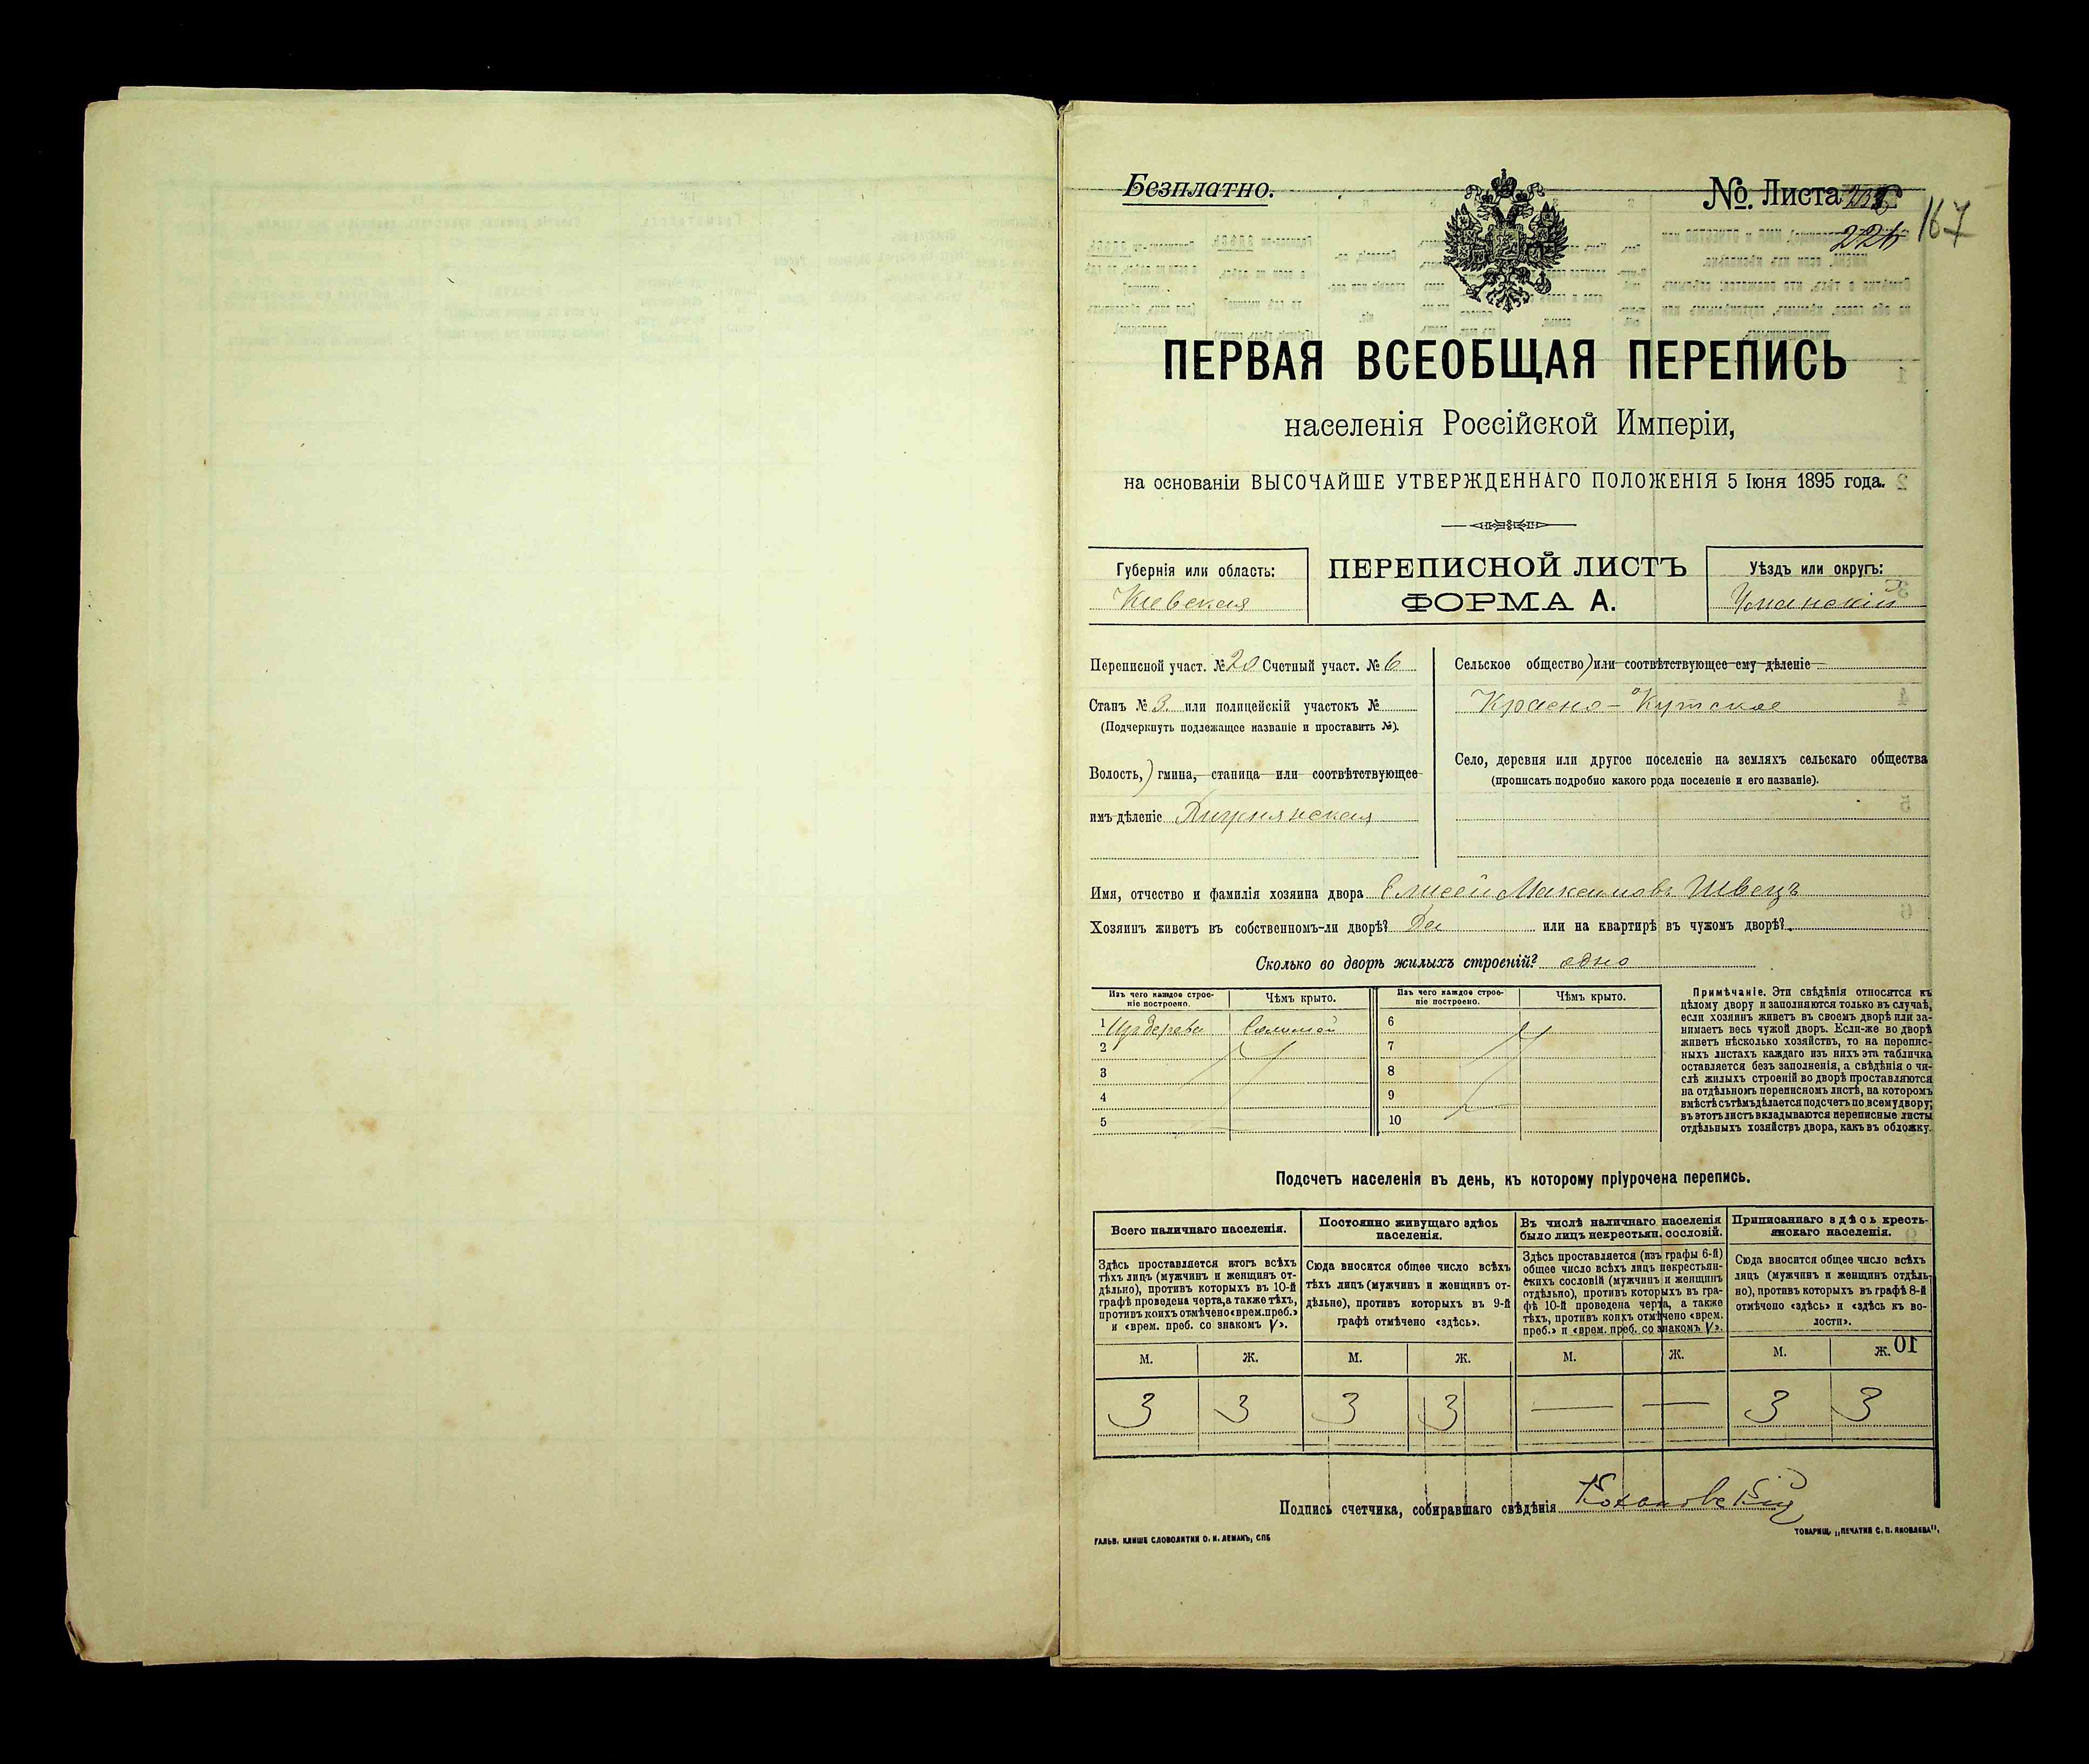 Безплатно.
№. Листа
226
167
ПЕРВАЯ ВСЕОБЩАЯ ПЕРЕПИСЬ
населенія Россійской Имперіи,
на основаніи ВЫСОЧАЙШЕ УТВЕРЖДЕННАГО ПОЛОЖЕНІЯ 5 Іюня 1895 года.
Губернія или область:
Кіевская
ПЕРЕПИСНОЙ ЛИСТЪ
ФОРМА А.
Уѣздъ или округъ:
Уманскій
Переписной участ. № 20 Счетный участ. № 6
Станъ № 3. или полицейскій участокъ №
(Подчеркнуть подлежащее названіе и проставить №).
Волость,) гмина, станица или соотвѣтствующее
имъ дѣленіе
Сельское общество) или соотвѣтствующее ему дѣленіе
Красно-Кутское
Село, деревня или другое поселеніе на земляхъ сельскаго общества
(прописать подробно какого рода поселеніе и его названіе).
Имя, отчество и фамилія хозяина двора Елисей Максимовъ Швецъ
Хозяинъ живетъ въ собственномъ-ли дворѣ? Да или на квартирѣ въ чужомъ дворѣ?
Сколько во дворѣ жилыхъ строеній? одно
Изъ чего каждое строе-
ніе построено.
Чѣмъ крыто.
1 Изъ дерева Соломой
2
3
4
5
Изъ чего каждое строе-
ніе построено.
Чѣмъ крыто.
6
7
8
9
10
Примѣчаніе. Эти свѣдѣнія относятся къ
цѣлому двору и заполняются только въ случаѣ,
если хозяинъ живетъ въ своемъ дворѣ или за-
нимаетъ весь чужой дворъ. Если-же во дворѣ
живетъ нѣсколько хозяйствъ, то на перепис-
ныхъ листахъ каждаго изъ нихъ эта табличка
оставляется безъ заполненія, а свѣдѣнія о чи-
слѣ жилыхъ строеній во дворѣ проставляются
на отдѣльномъ переписномъ листѣ, на которомъ
вмѣстѣ съ тѣмъ дѣлается подсчетъ по всему двору;
въ этотъ листъ вкладываются переписные листы
отдѣльныхъ хозяйствъ двора, какъ въ обложку.
Подсчетъ населенія въ день, къ которому пріурочена перепись.
Всего наличнаго населенія.
Здѣсь проставляется итогъ всѣхъ
тѣхъ лицъ (мужчинъ и женщинъ от-
дѣльно), противъ которыхъ въ 10-й
графѣ проведена черта, а также тѣхъ,
противъ коихъ отмѣчено «врем. преб.»
и «врем. преб. со знакомъ V».
М. Ж.
3 3
Постоянно живущаго здѣсь
населенія.
Сюда вносится общее число всѣхъ
тѣхъ лицъ (мужчинъ и женщинъ от-
дѣльно), противъ которыхъ въ 9-й
графѣ отмѣчено «здѣсь».
М. Ж.
3 3
Въ числѣ наличнаго населенія
было лицъ некрестьян. сословій.
Здѣсь проставляется (изъ графы 6-й)
общее число всѣхъ лицъ некрестьян-
скихъ сословій (мужчинъ и женщинъ
отдѣльно), противъ которыхъ въ гра-
фѣ 10-й проведена черта, а также
тѣхъ, противъ коихъ отмѣчено «врем.
преб.» и «врем. преб. со знакомъ V».
М. Ж.
— —
Приписаннаго здѣсь кресть-
янскаго населенія.
Сюда вносится общее число всѣхъ
лицъ (мужчинъ и женщинъ отдѣль-
но), противъ которыхъ въ графѣ 8-й
отмѣчено «здѣсь» и «здѣсь къ во-
лости».
М. Ж.
3 3
Подпись счетчика, собиравшаго свѣдѣнія
ГАЛЬВ. КЛИШЕ СЛОВОЛИТНИ О. И. ЛЕМАНЪ, СПБ
ТОВАРИЩ. „ПЕЧАТНЯ С. П. ЯКОВЛЕВА".